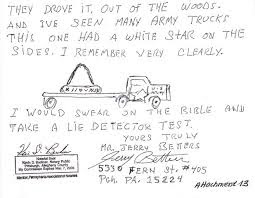 THEY DROVE IT, OUT OF THE WOODS.
AND I'VE BEEN MANY ARMY TRUCKS
THIS ONE HAD A WHITE STAR ON THE
SIDES. I REMEMBER VERY CLEARLY.
I WOULD SWEAR ON THE BIBLE AND
TAKE A LIE DETECTOR TEST.
YOURS TRULY
MR. JERRY BETTERS
Jerry Betters
5330 FERN ST. #405
PGH. PA. 15224
Notarial Seal
Notary Public
Pittsburgh, Allegheny County
My Commission Expires Nov. 7,
Member, Pennsylvania Association of Notaries
Attachment 13